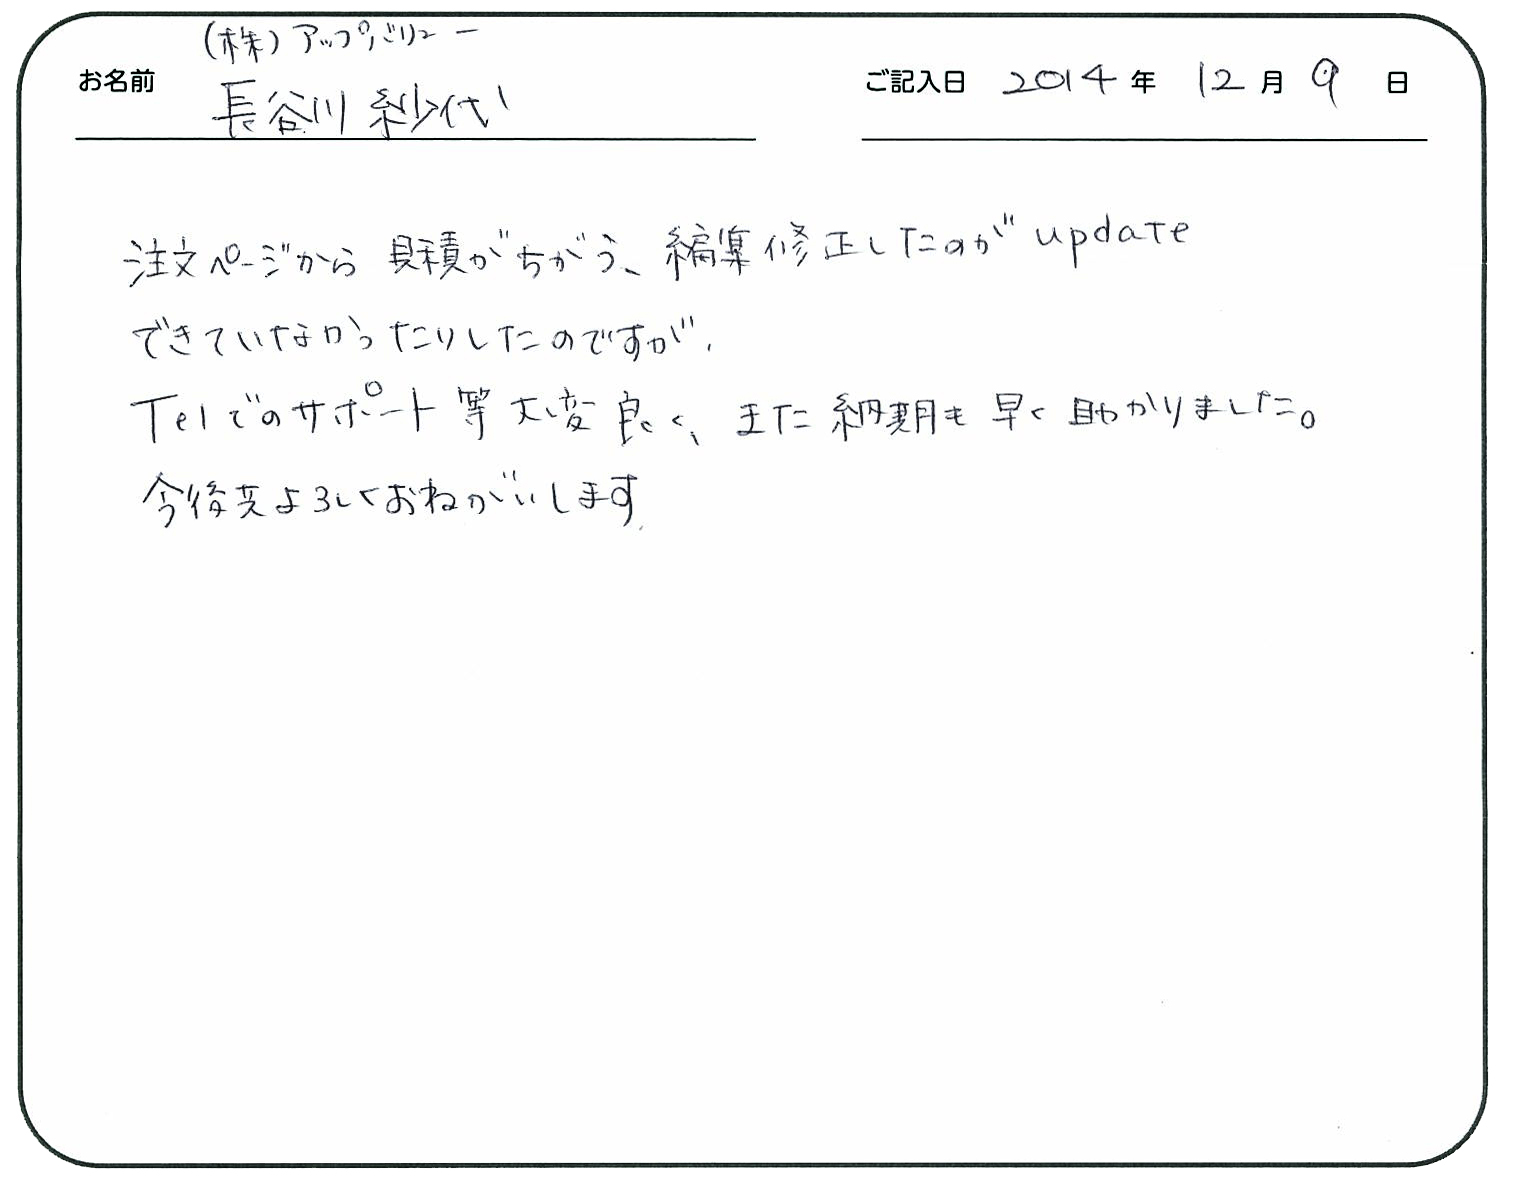 (株)アップバリュー
お名前 長谷川 紗代
ご記入日 2014年 12月 9日
注文ページから 見積がちがう、編集修正したのが update
できていなかったりしたのですが、
Telでのサポート等大変良く、また納期も早く助かりました。
今後共よろしくおねがいします